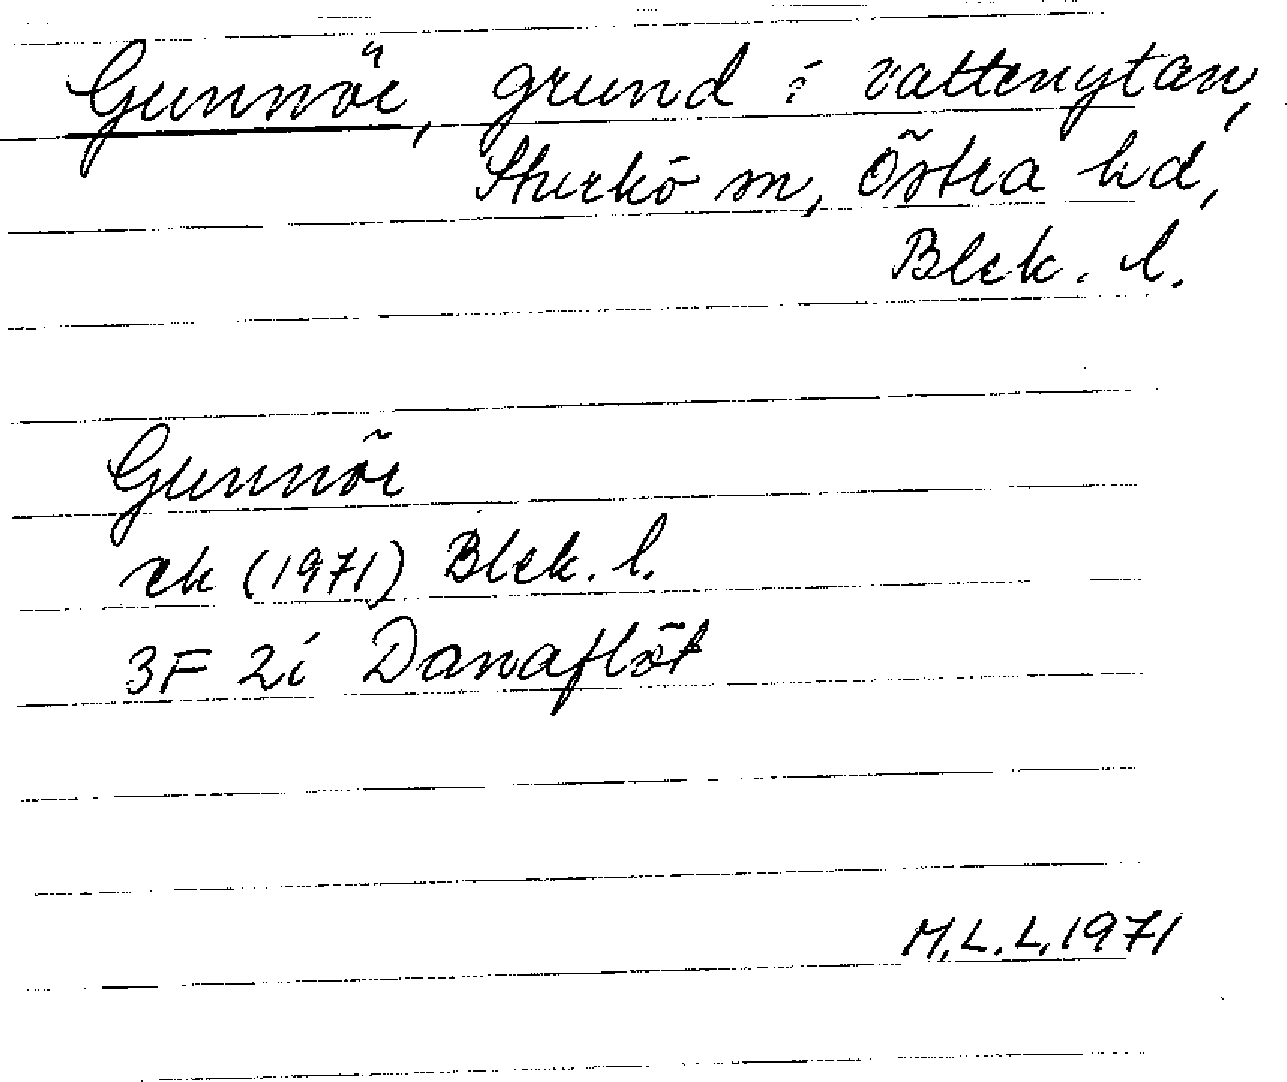 Gunnör, grund i vattenytan,
Sturkö sn, Östra hd,
Blek. l.
Gunnör
ek (1971) Blek. l.
3F 2i Danaflöt
M.L.L. 1971